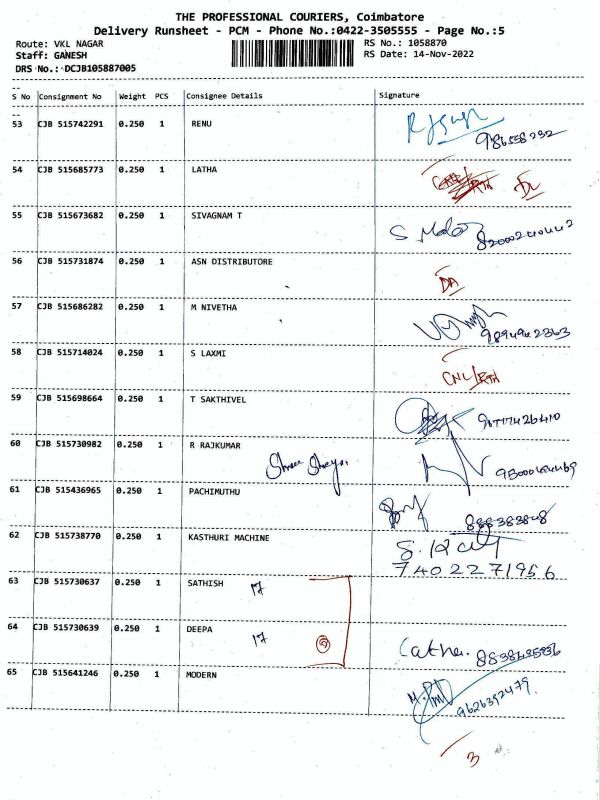 THE PROFESSIONAL COURIERS, Coimbatore
Delivery Runsheet - PCM - Phone No.:0422-3505555 - Page No.:5
Route: VKL NAGAR
RS No.: 1058870
Staff: GANESH
RS Date: 14-Nov-2022
DRS No.: DCJB105887005
S No Consignment No Weight PCS Consignee Details Signature
53 CJB 515742291 0.250 1 RENU
54 CJB 515685773 0.250 1 LATHA
DL
55 CJB 515673682 0.250 1 SIVAGNAM T
56 CJB 515731874 0.250 1 ASN DISTRIBUTORE
DA
57 CJB 515686282 0.250 1 M NIVETHA
9894942363
58 CJB 515714024 0.250 1 S LAXMI
CNL/RTH
59 CJB 515698664 0.250 1 T SAKTHIVEL
60 CJB 515730982 0.250 1 R RAJKUMAR
61 CJB 515436965 0.250 1 PACHIMUTHU
62 CJB 515738770 0.250 1 KASTHURI MACHINE
7402271956
63 CJB 515730637 0.250 1 SATHISH 17
64 CJB 515730639 0.250 1 DEEPA 17
Latha.
65 CJB 515641246 0.250 1 MODERN
9626392479
3